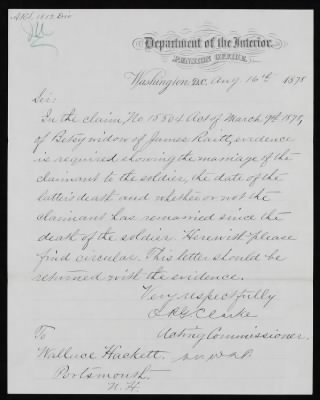 Department of the Interior,
PENSION OFFICE,
Washington, D.C. Aug 16th 1878
Sir:
In the claim, No 15564 Act of March 9th 1878,
of Betsy widow of James Raitt, evidence
is required showing the marriage of the
claimant to the soldier, the date of the
latter's death and whether or not the
claimant has remarried since the
death of the soldier. Herewith please
find circular. This letter should be
returned with the evidence.
Very respectfully
Clarke
Acting Commissioner.
To
Wallace Hackett.
Portsmouth.
N.H.